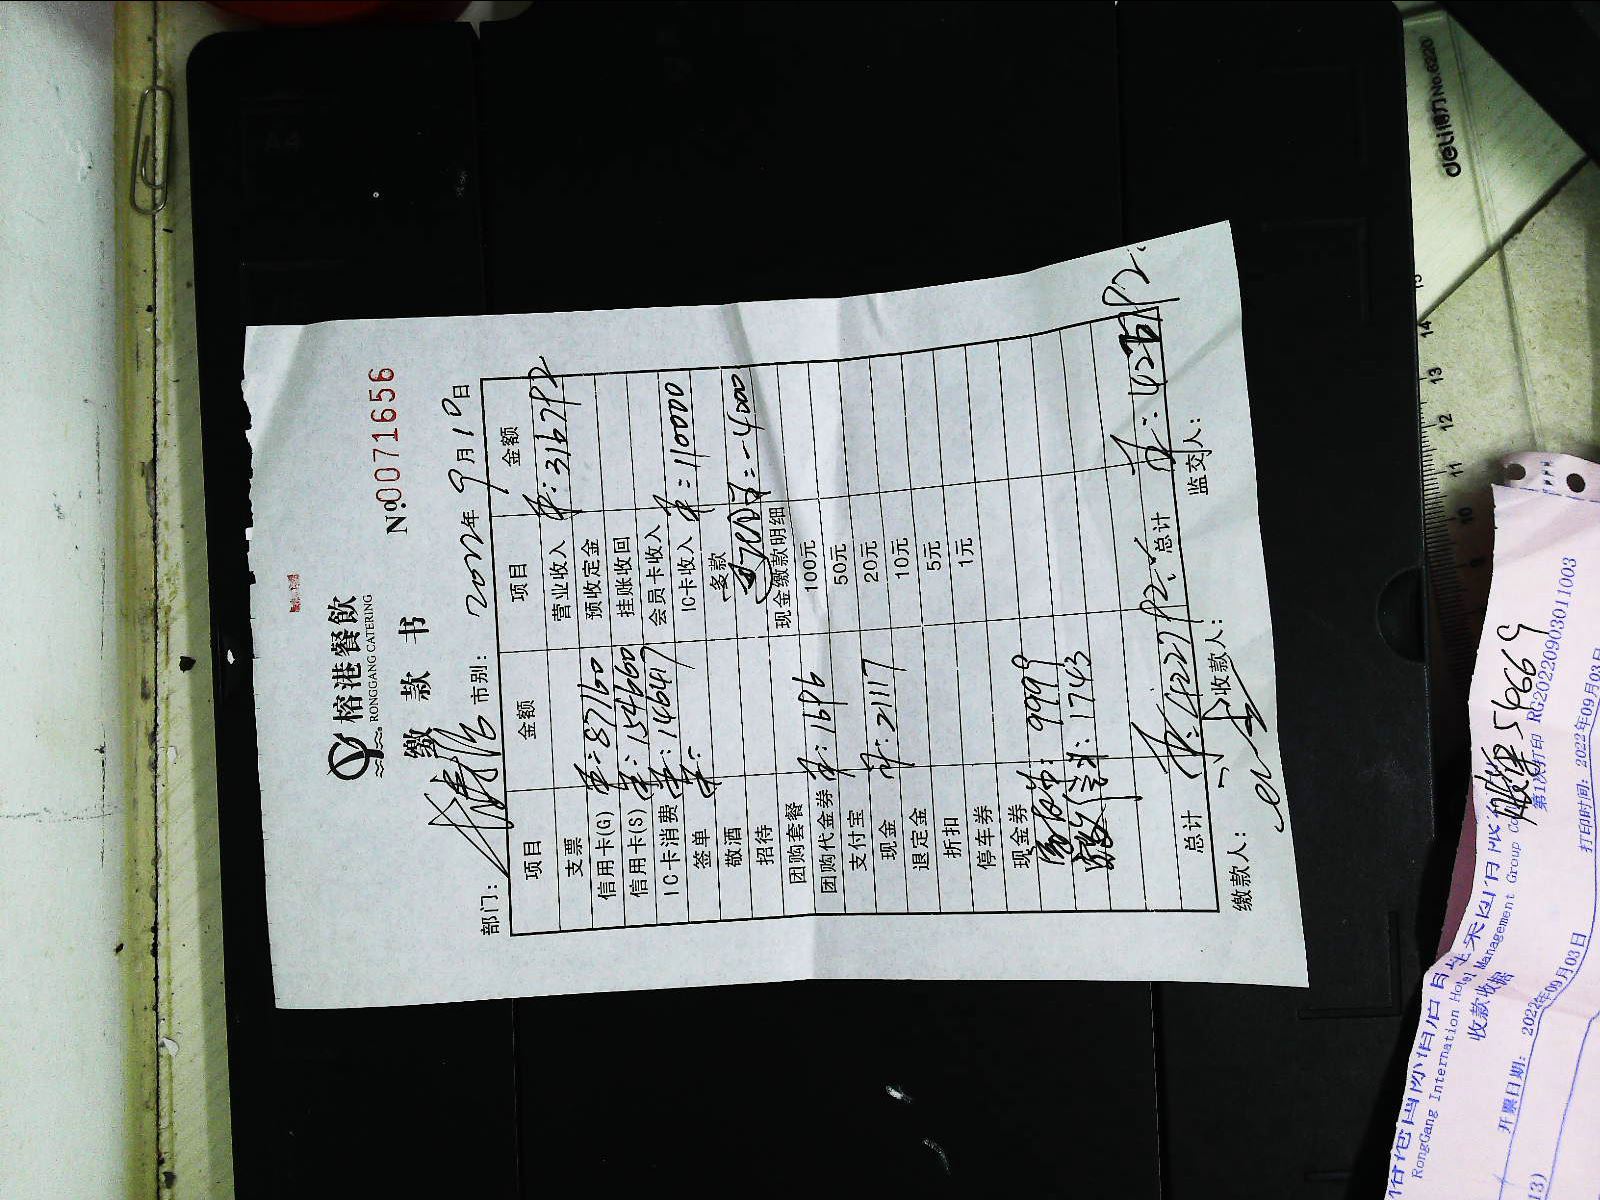 榕港餐飲
RONGGANG CATERING
缴 款 书
№0071656
部门： 市别： 2022年9月10日
项目 金额 项目 金额
支票 营业收入 ¥：316792
信用卡(G) ¥：87160 预收定金
信用卡(S) ¥：154660 挂账收回
IC卡消费 ¥：146417 会员卡收入
签单 ¥： IC卡收入 ¥：110000
敬酒 多款
招待 ：-4000
团购套餐 现金缴款明细
团购代金券 ¥：1696 100元
支付宝 50元
现金 ¥：21117 20元
退定金 10元
折扣 5元
停车券 1元
现金券
：9999
：1743
总计 ¥：422792 总计 ¥：422792
缴款人： 收款人： 监交人：
deli得力 No.6220
15
14
13
12
11
10
9
RongGang Internation Hotel Management Group Co
收款收据
54669
第1次打印 RG20220903011003
开票日期： 2022年09月03日
打印时间：2022年09月03日
13)